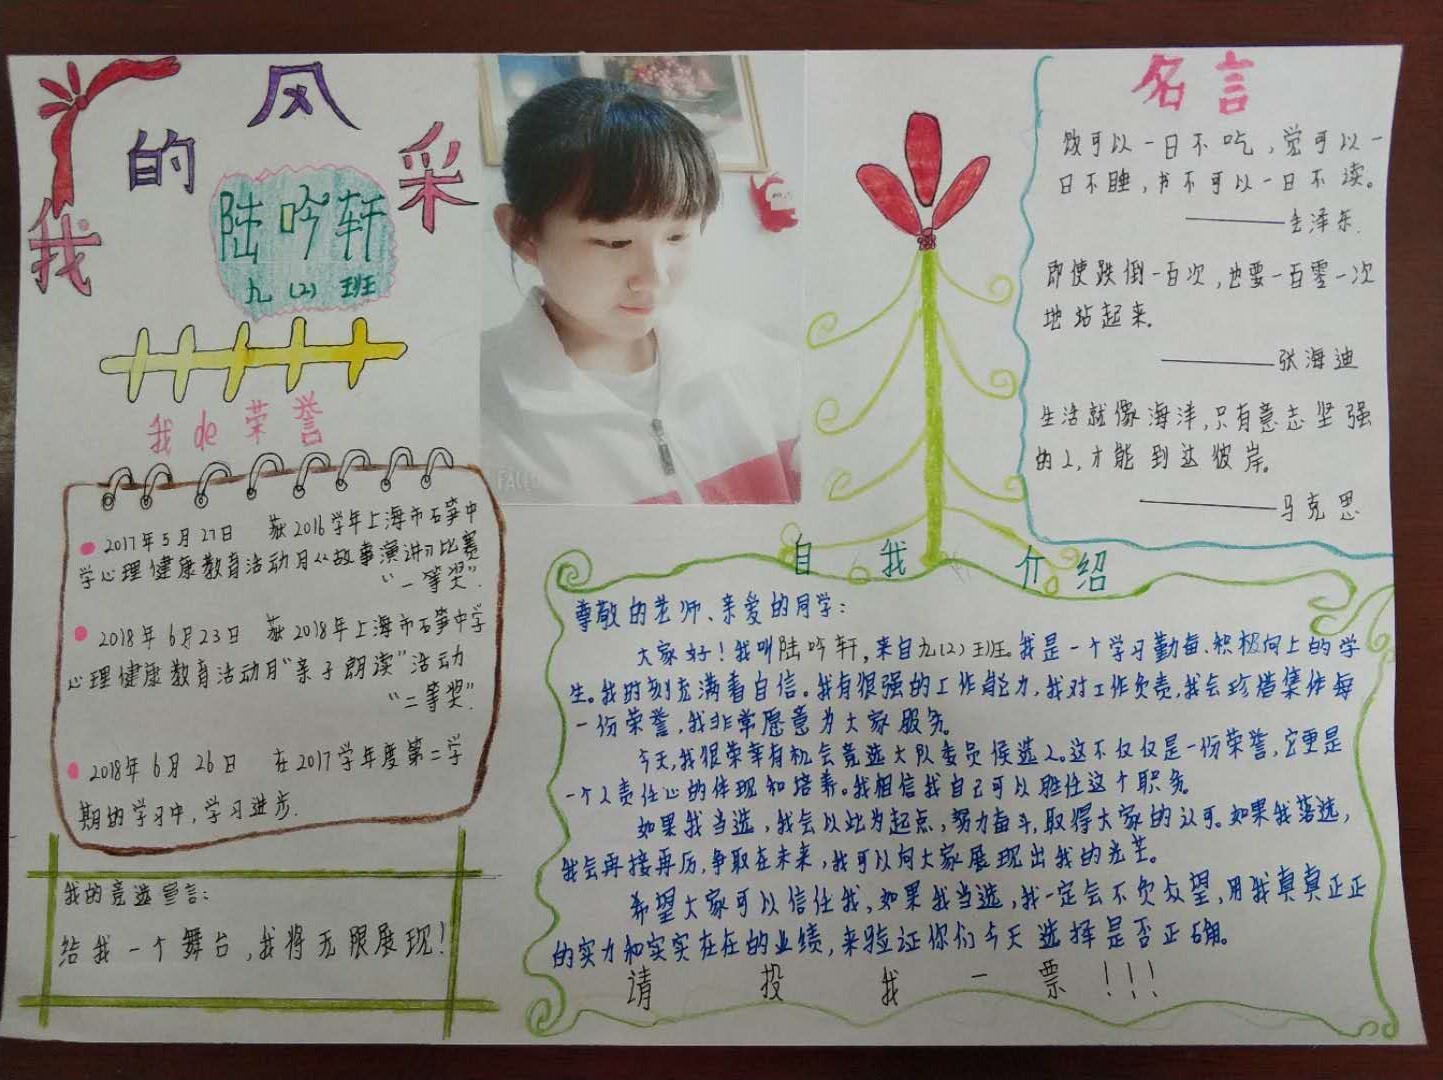 我的风采
陆吟轩
九(2)班
我de荣誉
2017年5月27日 获2016学年上海市石笋中
学心理健康教育活动月《故事演讲》比赛
“一等奖”.
2018年6月23日 获2018年上海市石笋中学
心理健康教育活动月“亲子朗读”活动
“二等奖”.
2018年6月26日 在2017学年度第二学
期的学习中,学习进步.
我的竞选宣言:
给我一个舞台,我将无限展现!
名言
饭可以一日不吃,觉可以一
日不睡,书不可以一日不读。
——毛泽东.
即使跌倒一百次,也要一百零一次
地站起来.
——张海迪
生活就像海洋,只有意志坚强
的人,才能到达彼岸。
——马克思
自我介绍
尊敬的老师、亲爱的同学:
大家好!我叫陆吟轩,来自九(2)班.我是一个学习勤奋、积极向上的学
生。我时刻充满着自信。我有很强的工作能力,我对工作负责,我会珍惜集体每
一份荣誉,我非常愿意为大家服务。
今天,我很荣幸有机会竞选大队委员候选人.这不仅仅是一份荣誉,它更是
一个人责任心的体现和培养。我相信我自己可以胜任这个职务。
如果我当选,我会以此为起点,努力奋斗,取得大家的认可。如果我落选,
我会再接再厉,争取在未来,我可以向大家展现出我的光芒。
希望大家可以信任我,如果我当选,我一定会不负众望,用我真真正正
的实力和实实在在的业绩,来验证你们今天选择是否正确。
请投我一票!!!